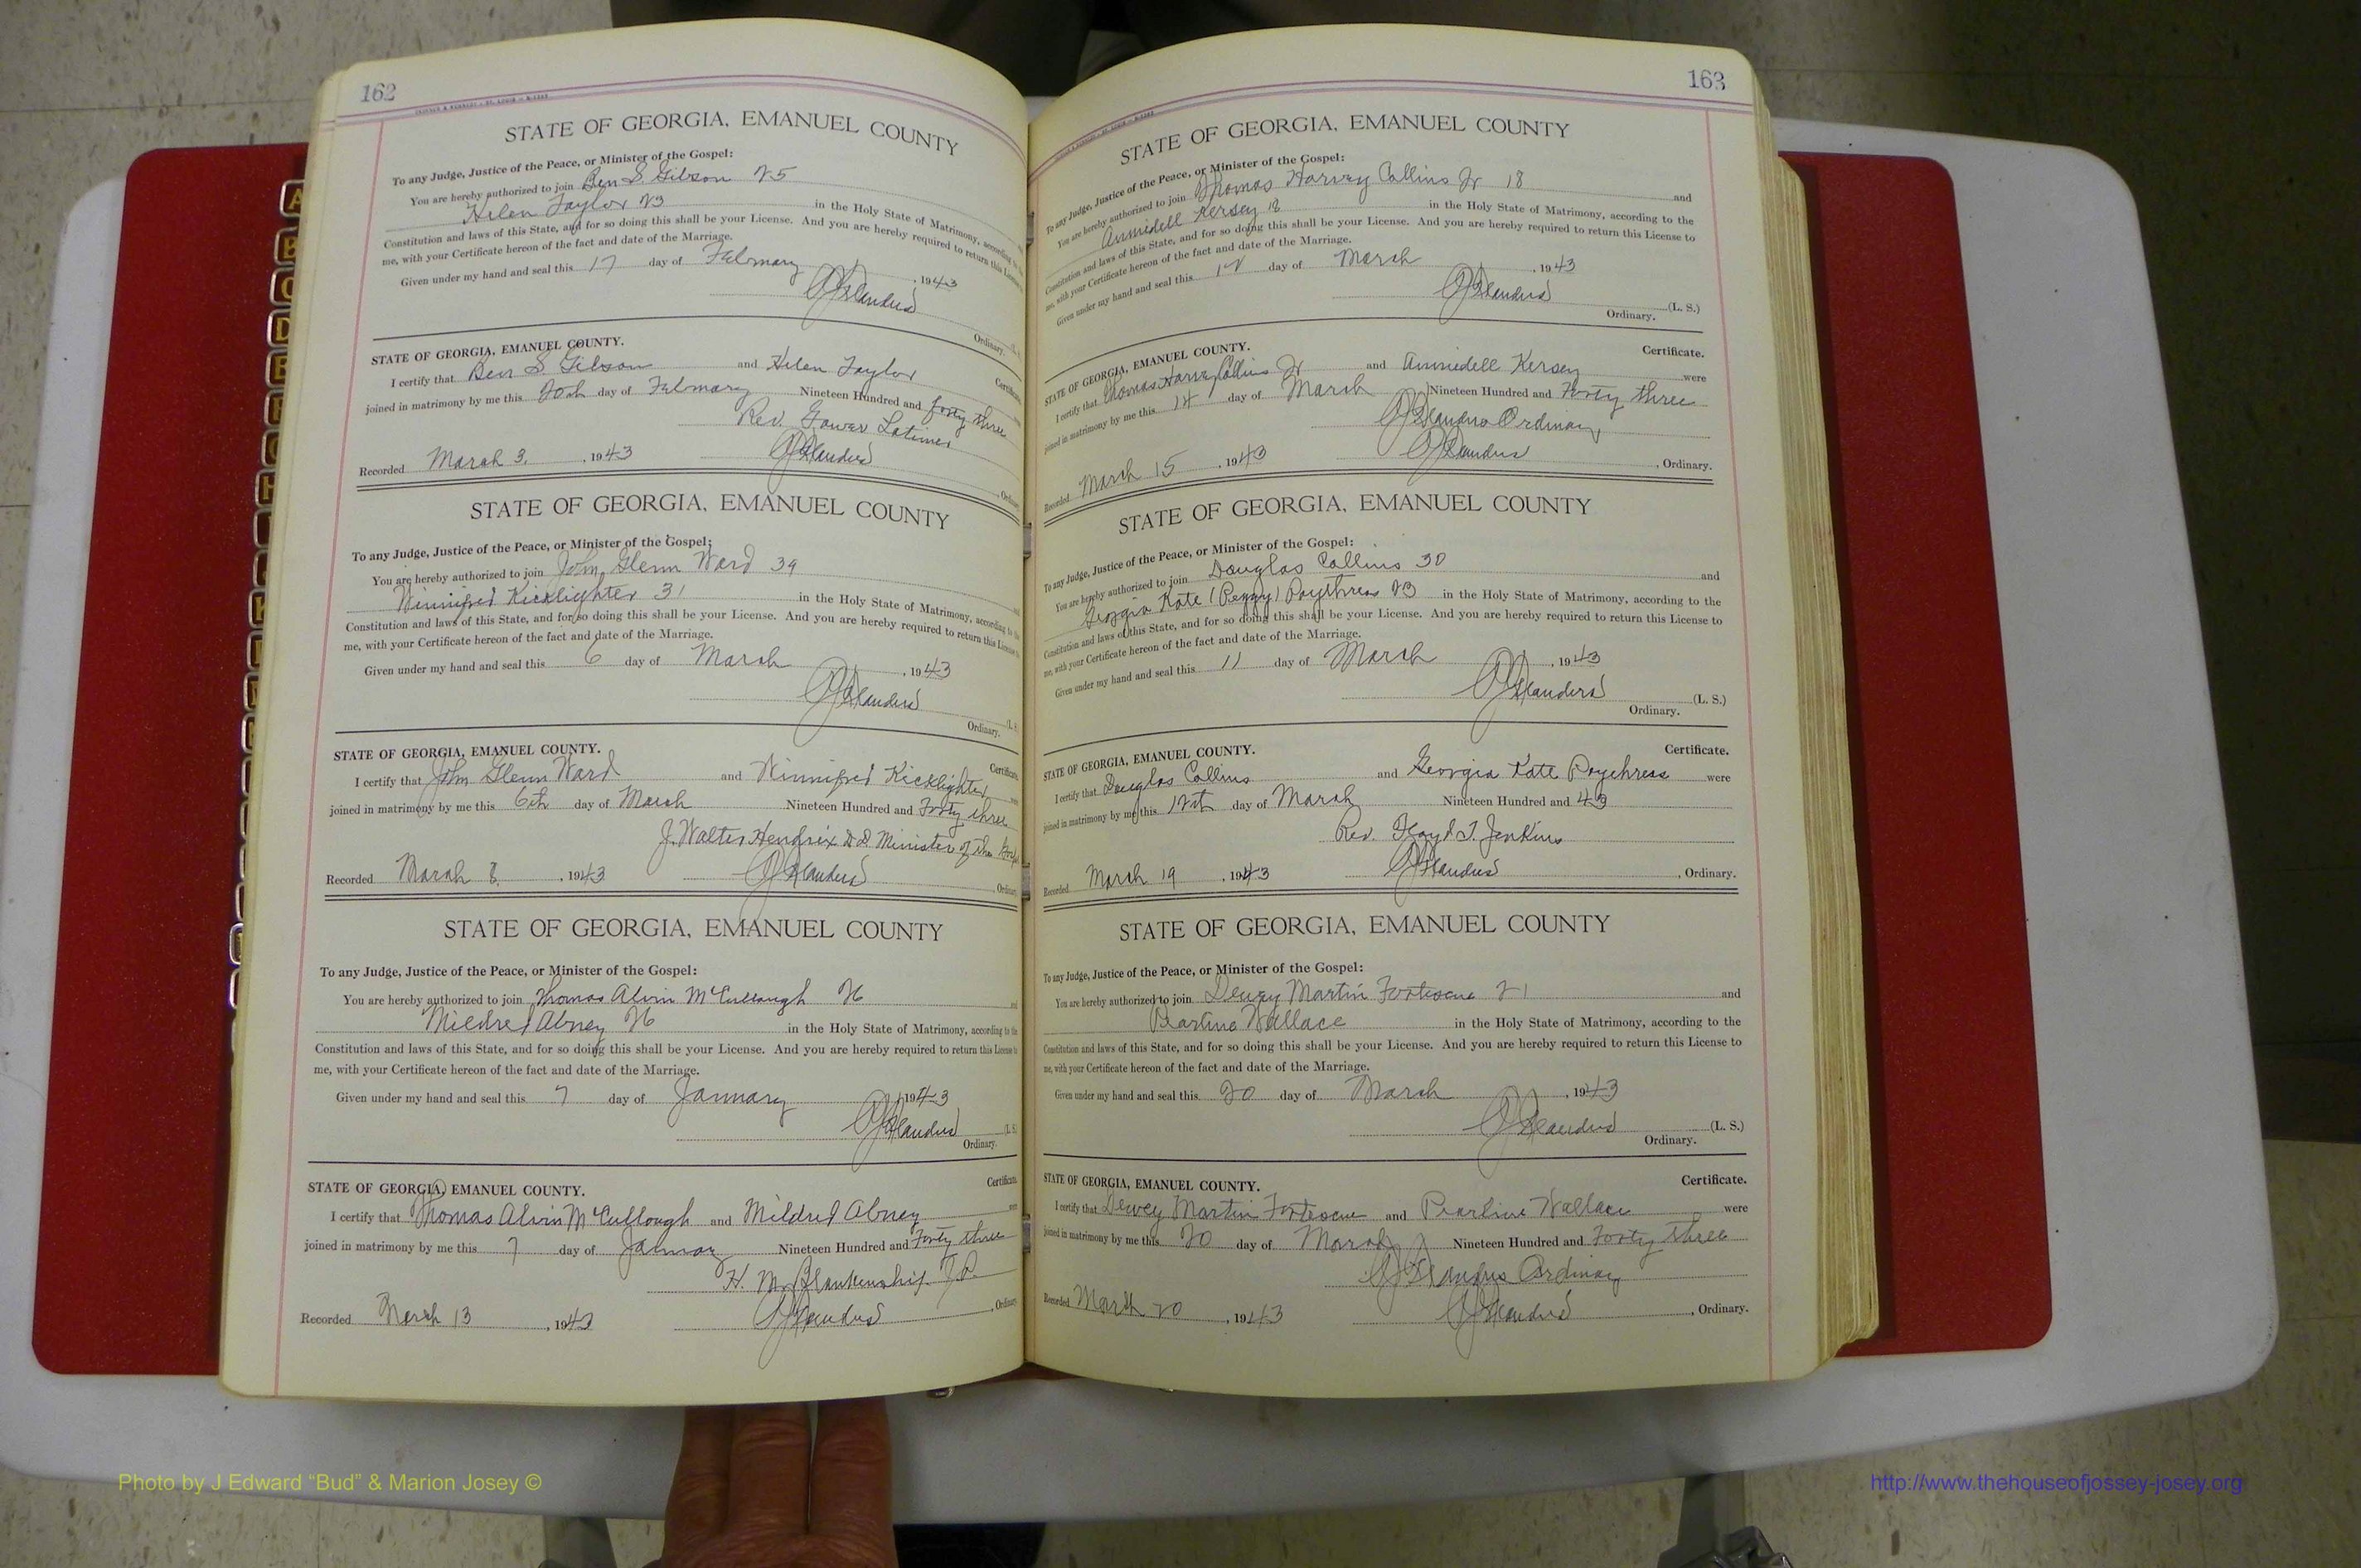 162
STATE OF GEORGIA, EMANUEL COUNTY
To any Judge, Justice of the Peace, or Minister of the Gospel:
You are hereby authorized to join Ben S. Gibson 25
Helen Taylor 23 in the Holy State of Matrimony, according to the
Constitution and laws of this State, and for so doing this shall be your License. And you are hereby required to return this License
me, with your Certificate hereon of the fact and date of the Marriage.
Given under my hand and seal this 17 day of February, 1943
Ordinary.
STATE OF GEORGIA, EMANUEL COUNTY. Certificate
I certify that Ben S Gibson and Helen Taylor
joined in matrimony by me this 20th day of February Nineteen Hundred and forty three
Rev. Gower Latimer
Recorded March 3, 1943
STATE OF GEORGIA, EMANUEL COUNTY
To any Judge, Justice of the Peace, or Minister of the Gospel:
You are hereby authorized to join John Glenn Ward 39
Winnifred Kicklighter 31 in the Holy State of Matrimony, according to the
Constitution and laws of this State, and for so doing this shall be your License. And you are hereby required to return this License
me, with your Certificate hereon of the fact and date of the Marriage.
Given under my hand and seal this 6 day of March, 1943
(L. S.
Ordinary.
STATE OF GEORGIA, EMANUEL COUNTY. Certificate
I certify that John Glenn Ward and Winnifred Kicklighter
joined in matrimony by me this 6th day of March Nineteen Hundred and Forty three
J. Walter Hendrix D.D. Minister of the
Recorded March 8, 1943
STATE OF GEORGIA, EMANUEL COUNTY
To any Judge, Justice of the Peace, or Minister of the Gospel:
You are hereby authorized to join Thomas Alvin McCullough 26
Mildred Abney 26 in the Holy State of Matrimony, according to the
Constitution and laws of this State, and for so doing this shall be your License. And you are hereby required to return this License to
me, with your Certificate hereon of the fact and date of the Marriage.
Given under my hand and seal this 7 day of January, 1943
(L. S.
Ordinary.
STATE OF GEORGIA, EMANUEL COUNTY. Certificate.
I certify that Thomas Alvin McCullough and Mildred Abney
joined in matrimony by me this 7 day of January Nineteen Hundred and Forty three
H. M. Blankenship J.P.
Recorded March 13, 1943
163
STATE OF GEORGIA, EMANUEL COUNTY
To any Judge, Justice of the Peace, or Minister of the Gospel:
You are hereby authorized to join Thomas Harvey Collins Jr 18 and
Annidell Kersey 18 in the Holy State of Matrimony, according to the
Constitution and laws of this State, and for so doing this shall be your License. And you are hereby required to return this License to
me, with your Certificate hereon of the fact and date of the Marriage.
Given under my hand and seal this 12 day of March, 1943
(L. S.)
Ordinary.
STATE OF GEORGIA, EMANUEL COUNTY. Certificate.
I certify that Thomas Harvey Collins Jr and Annidell Kersey were
joined in matrimony by me this 14 day of March Nineteen Hundred and Forty three
Ordinary
Recorded March 15, 1943, Ordinary.
STATE OF GEORGIA, EMANUEL COUNTY
To any Judge, Justice of the Peace, or Minister of the Gospel:
You are hereby authorized to join Douglas Collins 30 and
Georgia Kate (Peggy) Poythress 23 in the Holy State of Matrimony, according to the
Constitution and laws of this State, and for so doing this shall be your License. And you are hereby required to return this License to
me, with your Certificate hereon of the fact and date of the Marriage.
Given under my hand and seal this 11 day of March, 1943
(L. S.)
Ordinary.
STATE OF GEORGIA, EMANUEL COUNTY. Certificate.
I certify that Douglas Collins and Georgia Kate Poythress were
joined in matrimony by me this 12th day of March Nineteen Hundred and 43
Rev. Floyd T. Jenkins
Recorded March 19, 1943, Ordinary.
STATE OF GEORGIA, EMANUEL COUNTY
To any Judge, Justice of the Peace, or Minister of the Gospel:
You are hereby authorized to join Dewey Martin Fortescue 21 and
Pearline Wallace in the Holy State of Matrimony, according to the
Constitution and laws of this State, and for so doing this shall be your License. And you are hereby required to return this License to
me, with your Certificate hereon of the fact and date of the Marriage.
Given under my hand and seal this 20 day of March, 1943
(L. S.)
Ordinary.
STATE OF GEORGIA, EMANUEL COUNTY. Certificate.
I certify that Dewey Martin Fortescue and Pearline Wallace were
joined in matrimony by me this 20 day of March Nineteen Hundred and Forty three
Ordinary
Recorded March 20, 1943, Ordinary.
Photo by J Edward “Bud” & Marion Josey ©
http://www.thehouseofjossey-josey.org